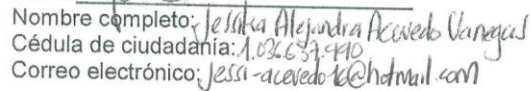 Nombre completo: Jessika Alejandra Acevedo Vanegas
Cédula de ciudadanía: 1.036.637.990
Correo electrónico: Jessi-acevedo16@hotmail.com